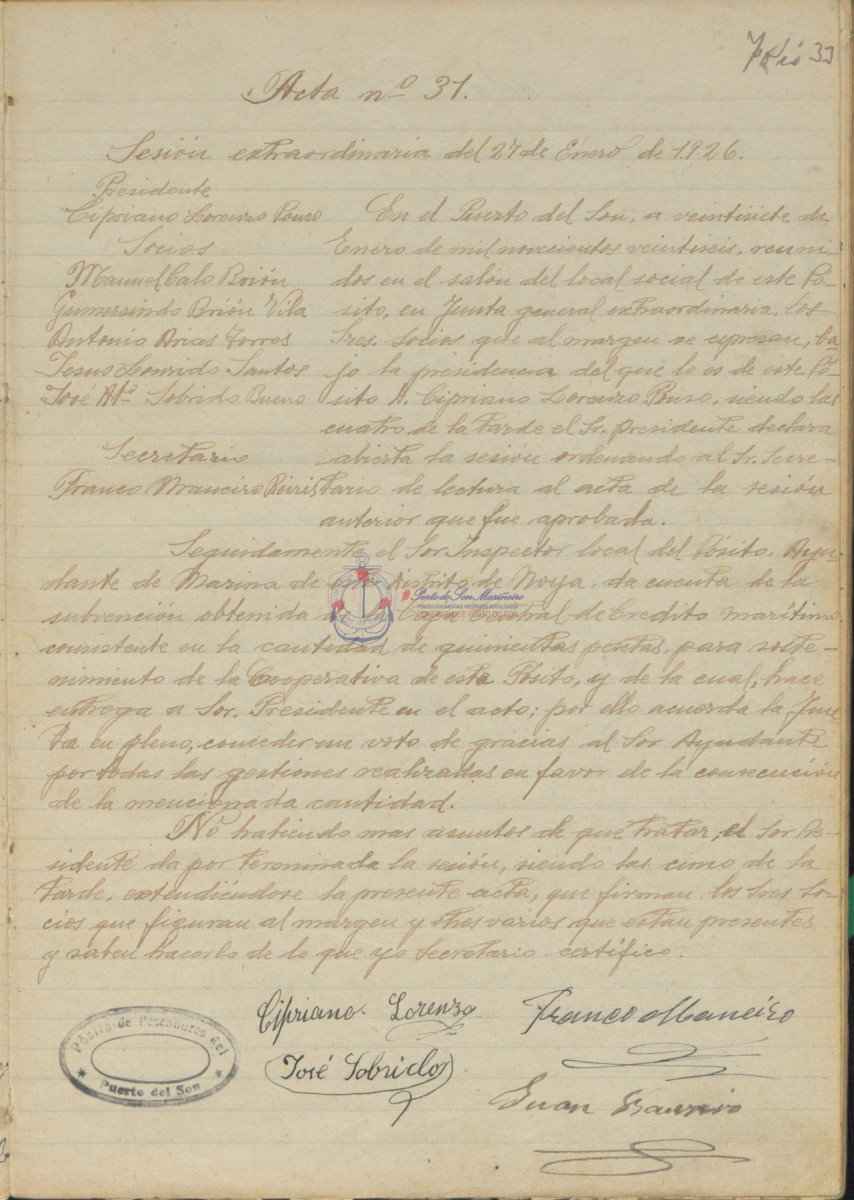 Folio 33
Acta nº 31.
Sesión extraordinaria del 27 de Enero de 1.926.
Presidente
Cipriano Lorenzo Pouso
Socios
Manuel Calo Brión
Gumersindo Brión Vila
Antonio Arias Torres
Jesus Lourido Santos
José Mº Sobrido Bueno
Secretario
Franco Maneiro
En el Puerto del Son, a veintisiete de
Enero de mil novecientos veintiseis, reuni-
dos en el salón del local social de este Pó-
sito, en Junta general extraordinaria, los
Sres. Socios que al margen se expresan, ba-
jo la presidencia del que lo es de este Pó-
sito D. Cipriano Lorenzo Pouso, siendo las
cuatro de la tarde el Sr. presidente declara
abierta la sesión ordenando al Sr. Secre-
tario de lectura al acta de la sesión
anterior que fue aprobada.
Seguidamente el Sor Inspector local del Pósito, Ayu-
dante de Marina de este distrito de Noya, da cuenta de la
subvención obtenida Central de Credito maritimo
consistente en la cantidad de quinientas pesetas, para soste-
nimiento de la Cooperativa de este Pósito, y de la cual, hace
entrega a Sor. Presidente en el acto; por ello acuerda la Jun
ta en pleno, conceder un voto de gracias al Sor Ayudante
por todas las gestiones realizadas en favor de la consecución
de la mencionada cantidad.
No habiendo mas asuntos de que tratar, el Sor Pre-
sidente da por terminada la sesión, siendo las cinco de la
tarde, extendiéndose la presente acta, que firman los Sres So-
cios que figuran al margen y otros varios que estan presentes
y saben hacerlo de lo que yo Secretario certifico.
Porto do Son Mariñeiro
Cipriano Lorenzo
Franco Maneiro
José Sobrido
Juan
Pósito de Pescadores del
Puerto del Son